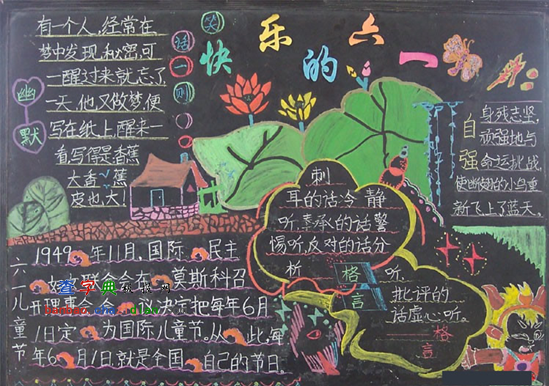 快乐的六一
笑话一则
幽默
有一个人,经常在
梦中发现秘密,可
一醒过来就忘了
一天,他又做梦便
写在纸上,醒来一
看,写得是香蕉
大香蕉
皮也大!
自强
身残志坚,
顽强地与
命运挑战,
新飞上了蓝天。
刺
耳的话冷静
听,奉承的话警
惕听,反对的话分
析听,
批评的
话虚心听。
格言
格言
六一儿童节
1949年11月,国际民主
妇女联合会在莫斯科召
开理事会会议,决定把每年6月
1日定为国际儿童节。从此,每
年6月1日就是全国自己的节日。
查字典